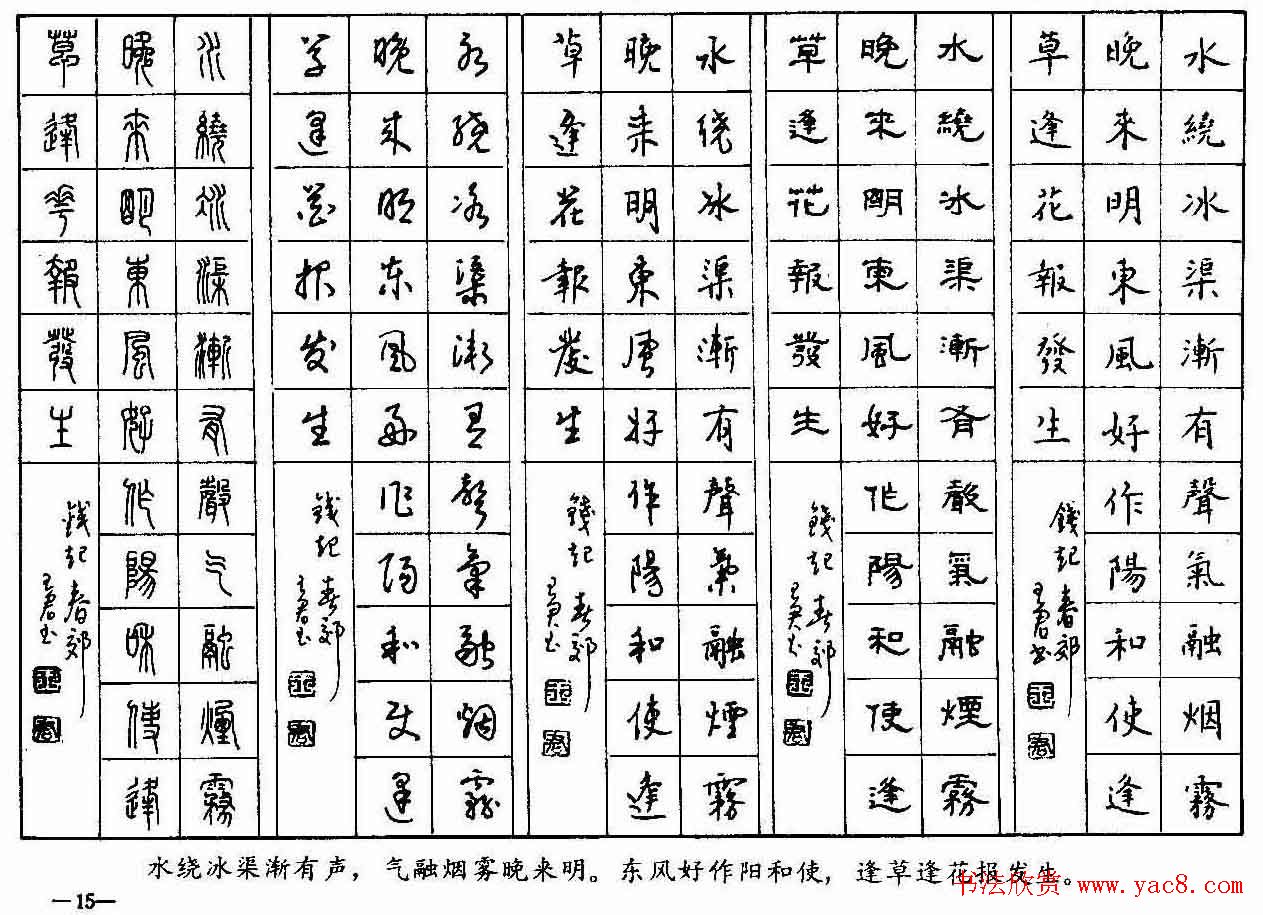 水繞冰渠漸有聲氣融烟霧
晚來明東風好作陽和使逢
草逢花報發生
錢起春郊
王君书
水繞冰渠漸有聲氣融煙霧
晚來明東風好作陽和使逢
草逢花報發生
錢起春郊
水绕冰渠漸有聲氣融煙霧
晚来明東風好作陽和使逢
草逢花報發生
錢起春郊
水绕冰渠渐有聲氣融烟霧
晚来明东风好作阳和使逢
草逢花报发生
錢起春郊
水繞冰渠漸有聲气融煙霧
晚來明東風好作陽和使逢
草逢華報發生
錢起春郊
水绕冰渠渐有声，气融烟雾晚来明。东风好作阳和使，逢草逢花报发生。
—15—
书法欣赏 www.yac8.com